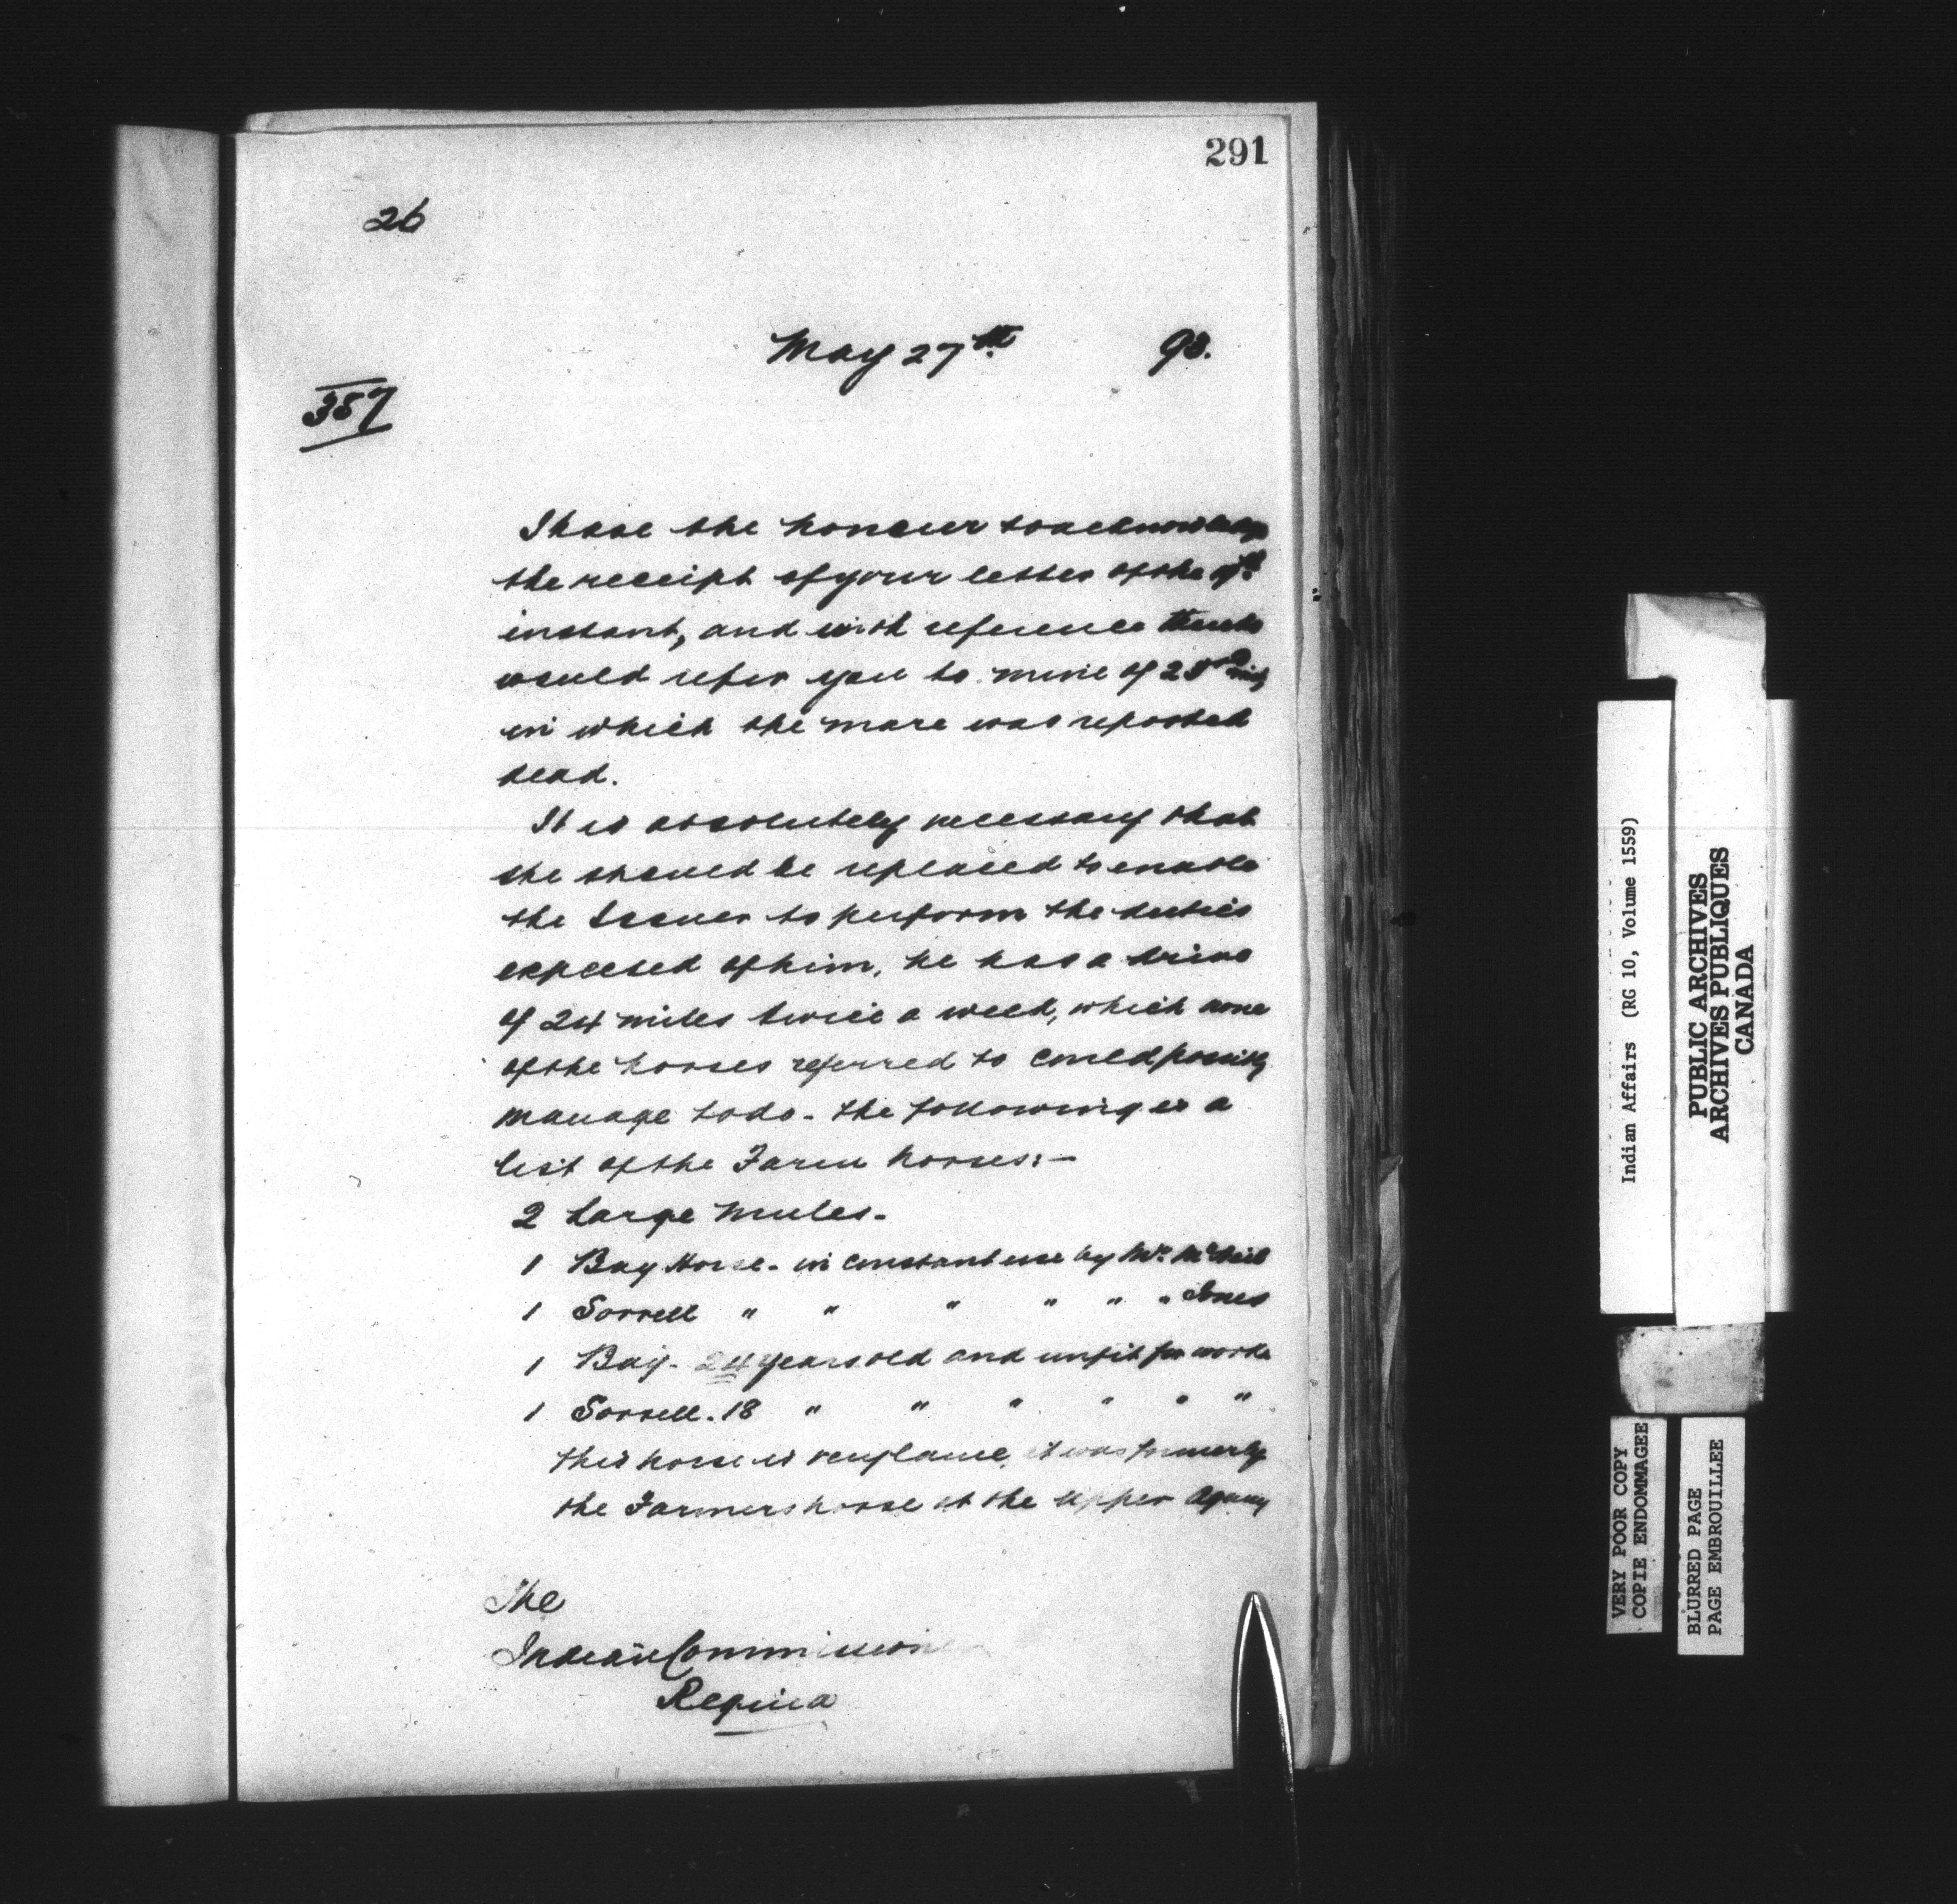 291
26
May 27th 93.
357
I have the honour to acknowledge
the receipt of your letter of the
instant, and with reference thereto
would refer you to mine of 23rd inst
in which the mare was reported
dead.
It is absolutely necessary that
she should be replaced to enable
the Issuer to perform the duties
expected of him, he has a drive
of 24 miles twice a week, which none
of the horses referred to could possibly
manage to do - the following is a
list of the Farm horses:-
2 Large Mules.
1 Bay Horse - in constant use by Mr. McNeil
1 Sorrell " " " " " "
1 Bay - 24 years old and unfit for work
1 Sorrell. 18 " " " " " "
this horse is very lame, it was formerly
the Farmers horse at the upper Agency
The
Indian Commissioner
Regina
Indian Affairs (RG 10, Volume 1559)
PUBLIC ARCHIVES
ARCHIVES PUBLIQUES
CANADA
VERY POOR COPY
COPIE ENDOMMAGEE
BLURRED PAGE
PAGE EMBROUILLEE